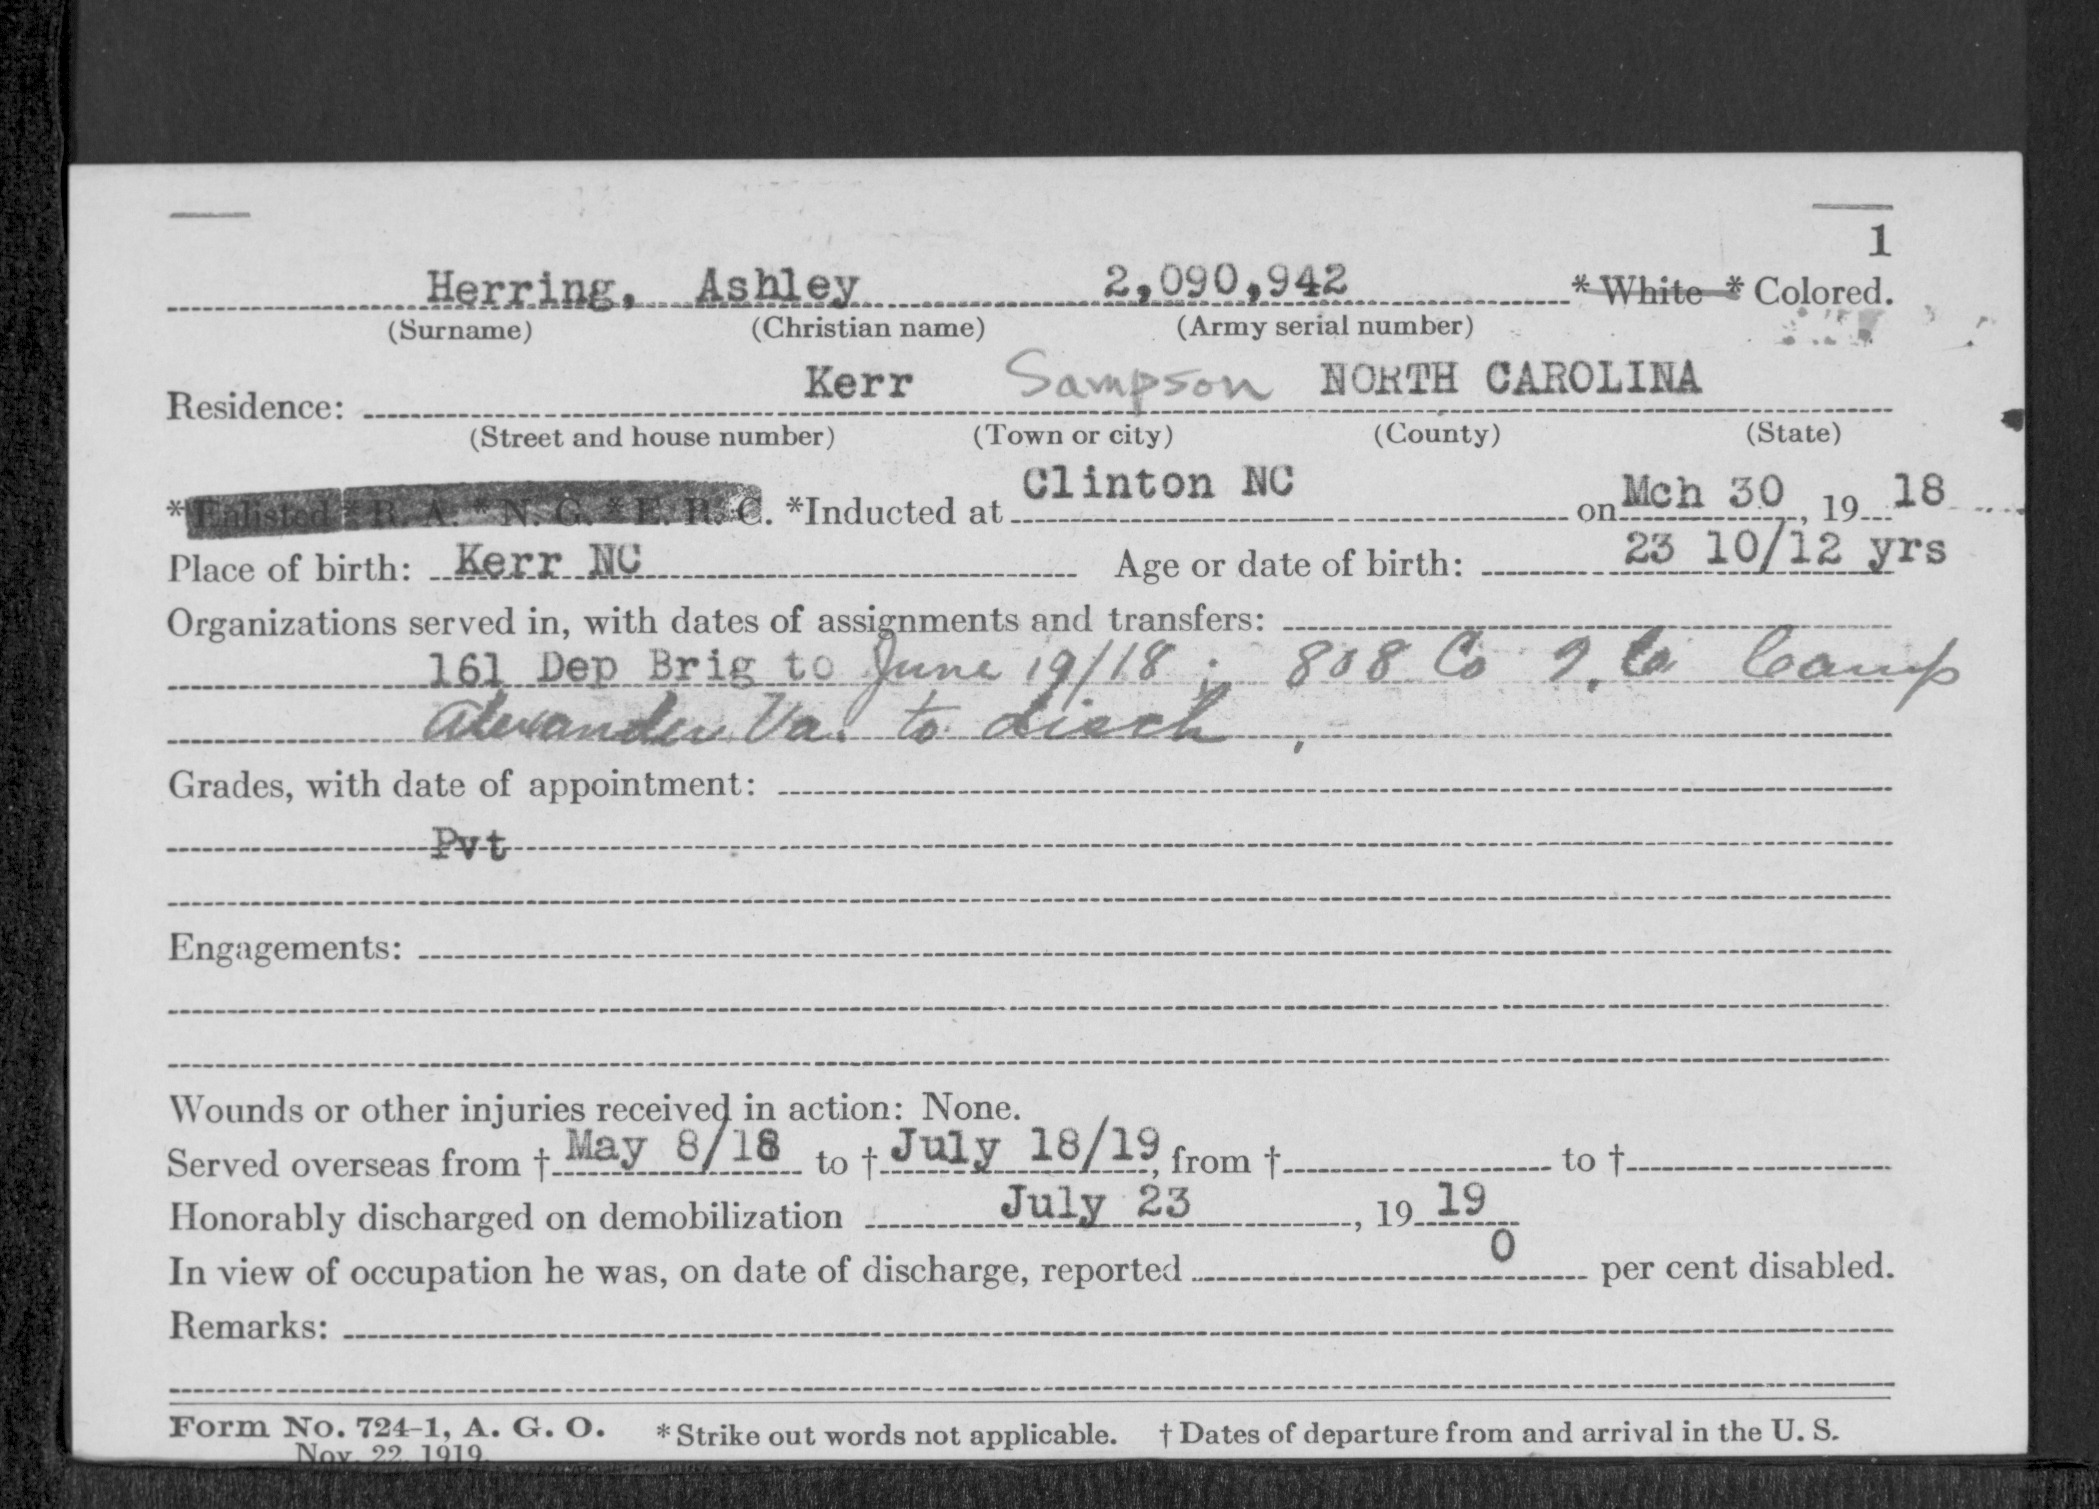 1
Herring, Ashley 2,090,942 * White * Colored.
(Surname) (Christian name) (Army serial number)
Residence: Kerr Sampson NORTH CAROLINA
(Street and house number) (Town or city) (County) (State)
*Enlisted * R. A. * N. G. * E. R. C. *Inducted at Clinton NC on Mch 30, 19 18
Place of birth: Kerr NC Age or date of birth: 23 10/12 yrs
Organizations served in, with dates of assignments and transfers:
161 Dep Brig to June 19/18; 808 Co Camp
Alexander Va. to disch
Grades, with date of appointment:
Pvt
Engagements:
Wounds or other injuries received in action: None.
Served overseas from † May 8/18 to † July 18/19, from † to †
Honorably discharged on demobilization July 23, 19 19
In view of occupation he was, on date of discharge, reported 0 per cent disabled.
Remarks:
Form No. 724-1, A. G. O. * Strike out words not applicable. † Dates of departure from and arrival in the U. S.
Nov. 22, 1919.